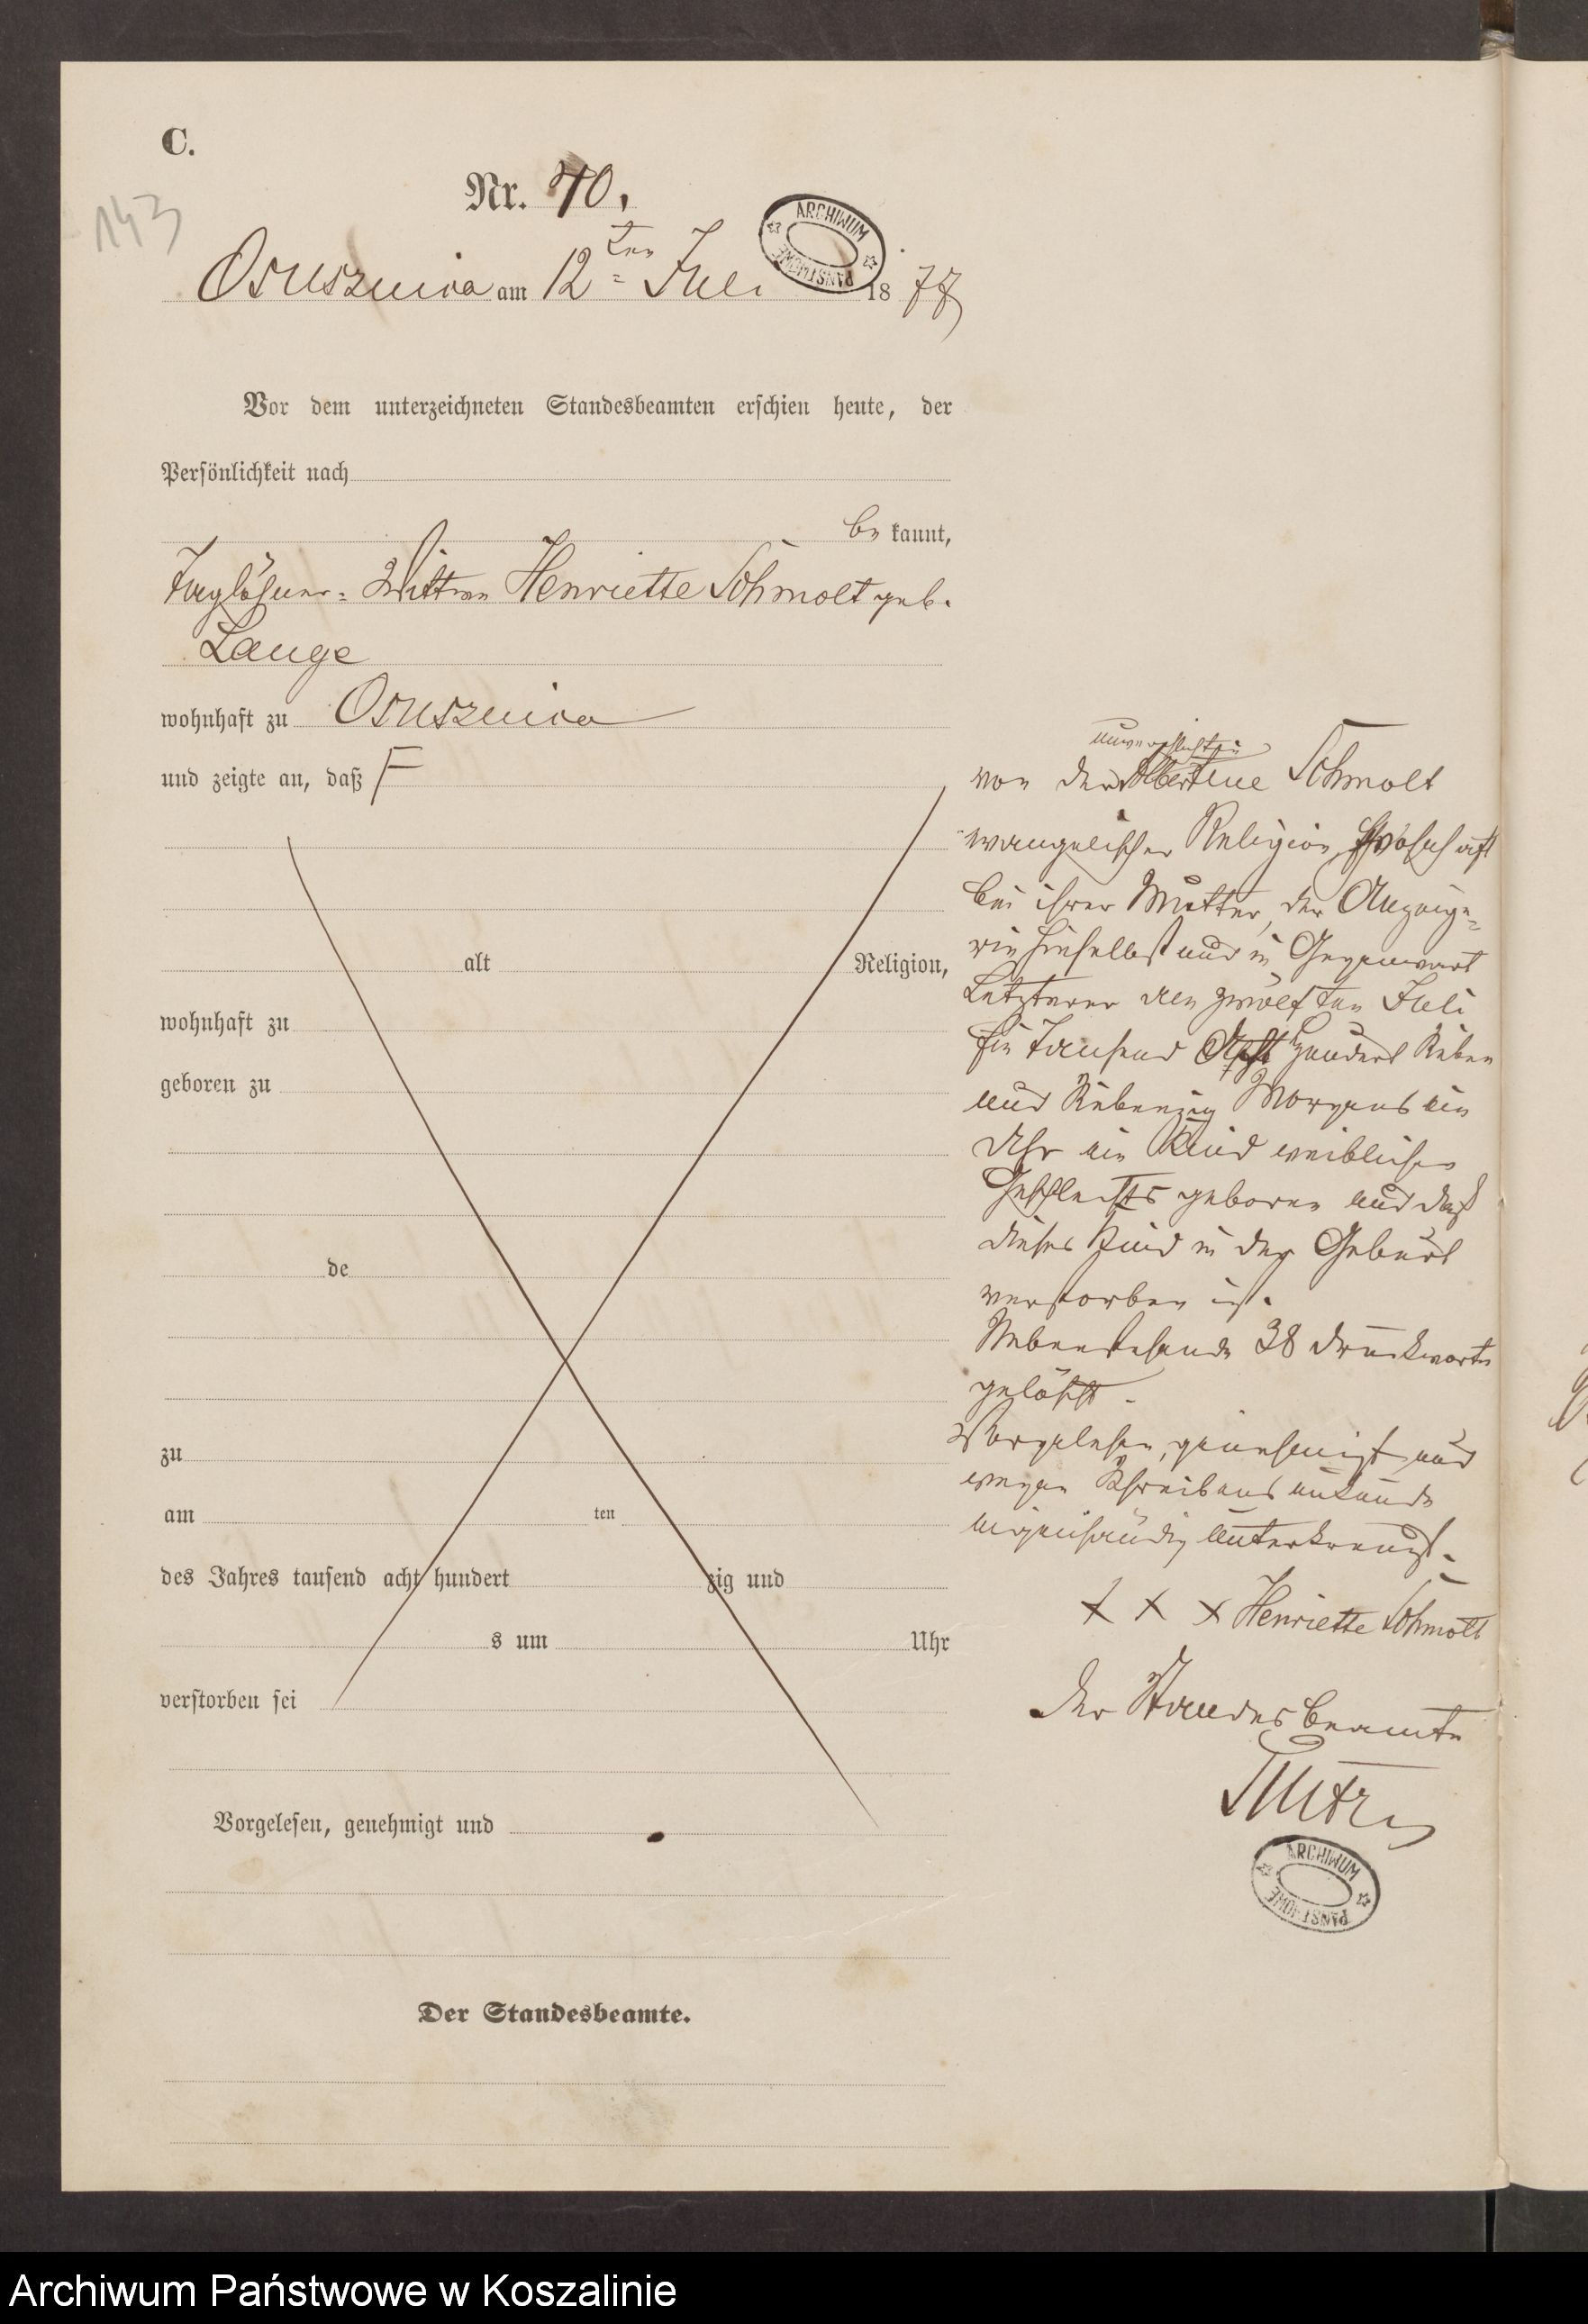 C.
143
Nr. 40.
ARCHIWUM PAŃSTWOWE
Osusznica am 12ten Juli 1877
Vor dem unterzeichneten Standesbeamten erschien heute, der
Persönlichkeit nach
be kannt,
Tagelöhner=Wittwe Henriette Schmolt geb.
Lange
wohnhaft zu Osusznica
und zeigte an, daß
alt Religion,
wohnhaft zu
geboren zu
de
zu
am ten
des Jahres tausend acht hundert zig und
s um Uhr
verstorben sei
Vorgelesen, genehmigt und
Der Standesbeamte.
unverehelichten
von der Albertine Schmolt
evangelischer Religion, wohnhaft
bei ihrer Mutter, der Anzeige=
rin hieselbst und in Gegenwart
Letzterer den zwölften Juli
Ein Tausend Acht hundert sieben
und siebenzig Morgens ein
Uhr ein Kind weiblichen
Geschlechts geboren und daß
dieses Kind in der Geburt
verstorben ist.
Nebenstehende 38 Druckworte
gelöscht.
Vorgelesen, genehmigt und
wegen Schreibens unkunde
eigenhändig unterkreuzt.
+ + + Henriette Schmolt
Der Standesbeamte
ARCHIWUM PAŃSTWOWE
Archiwum Państwowe w Koszalinie